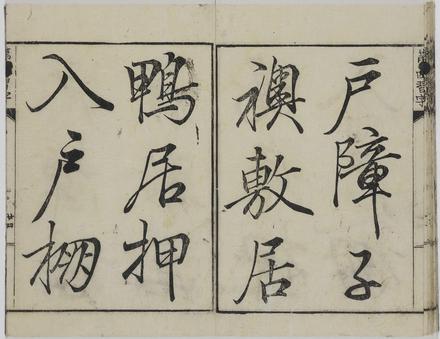 戸障子
襖敷居
鴨居押
入戸棚